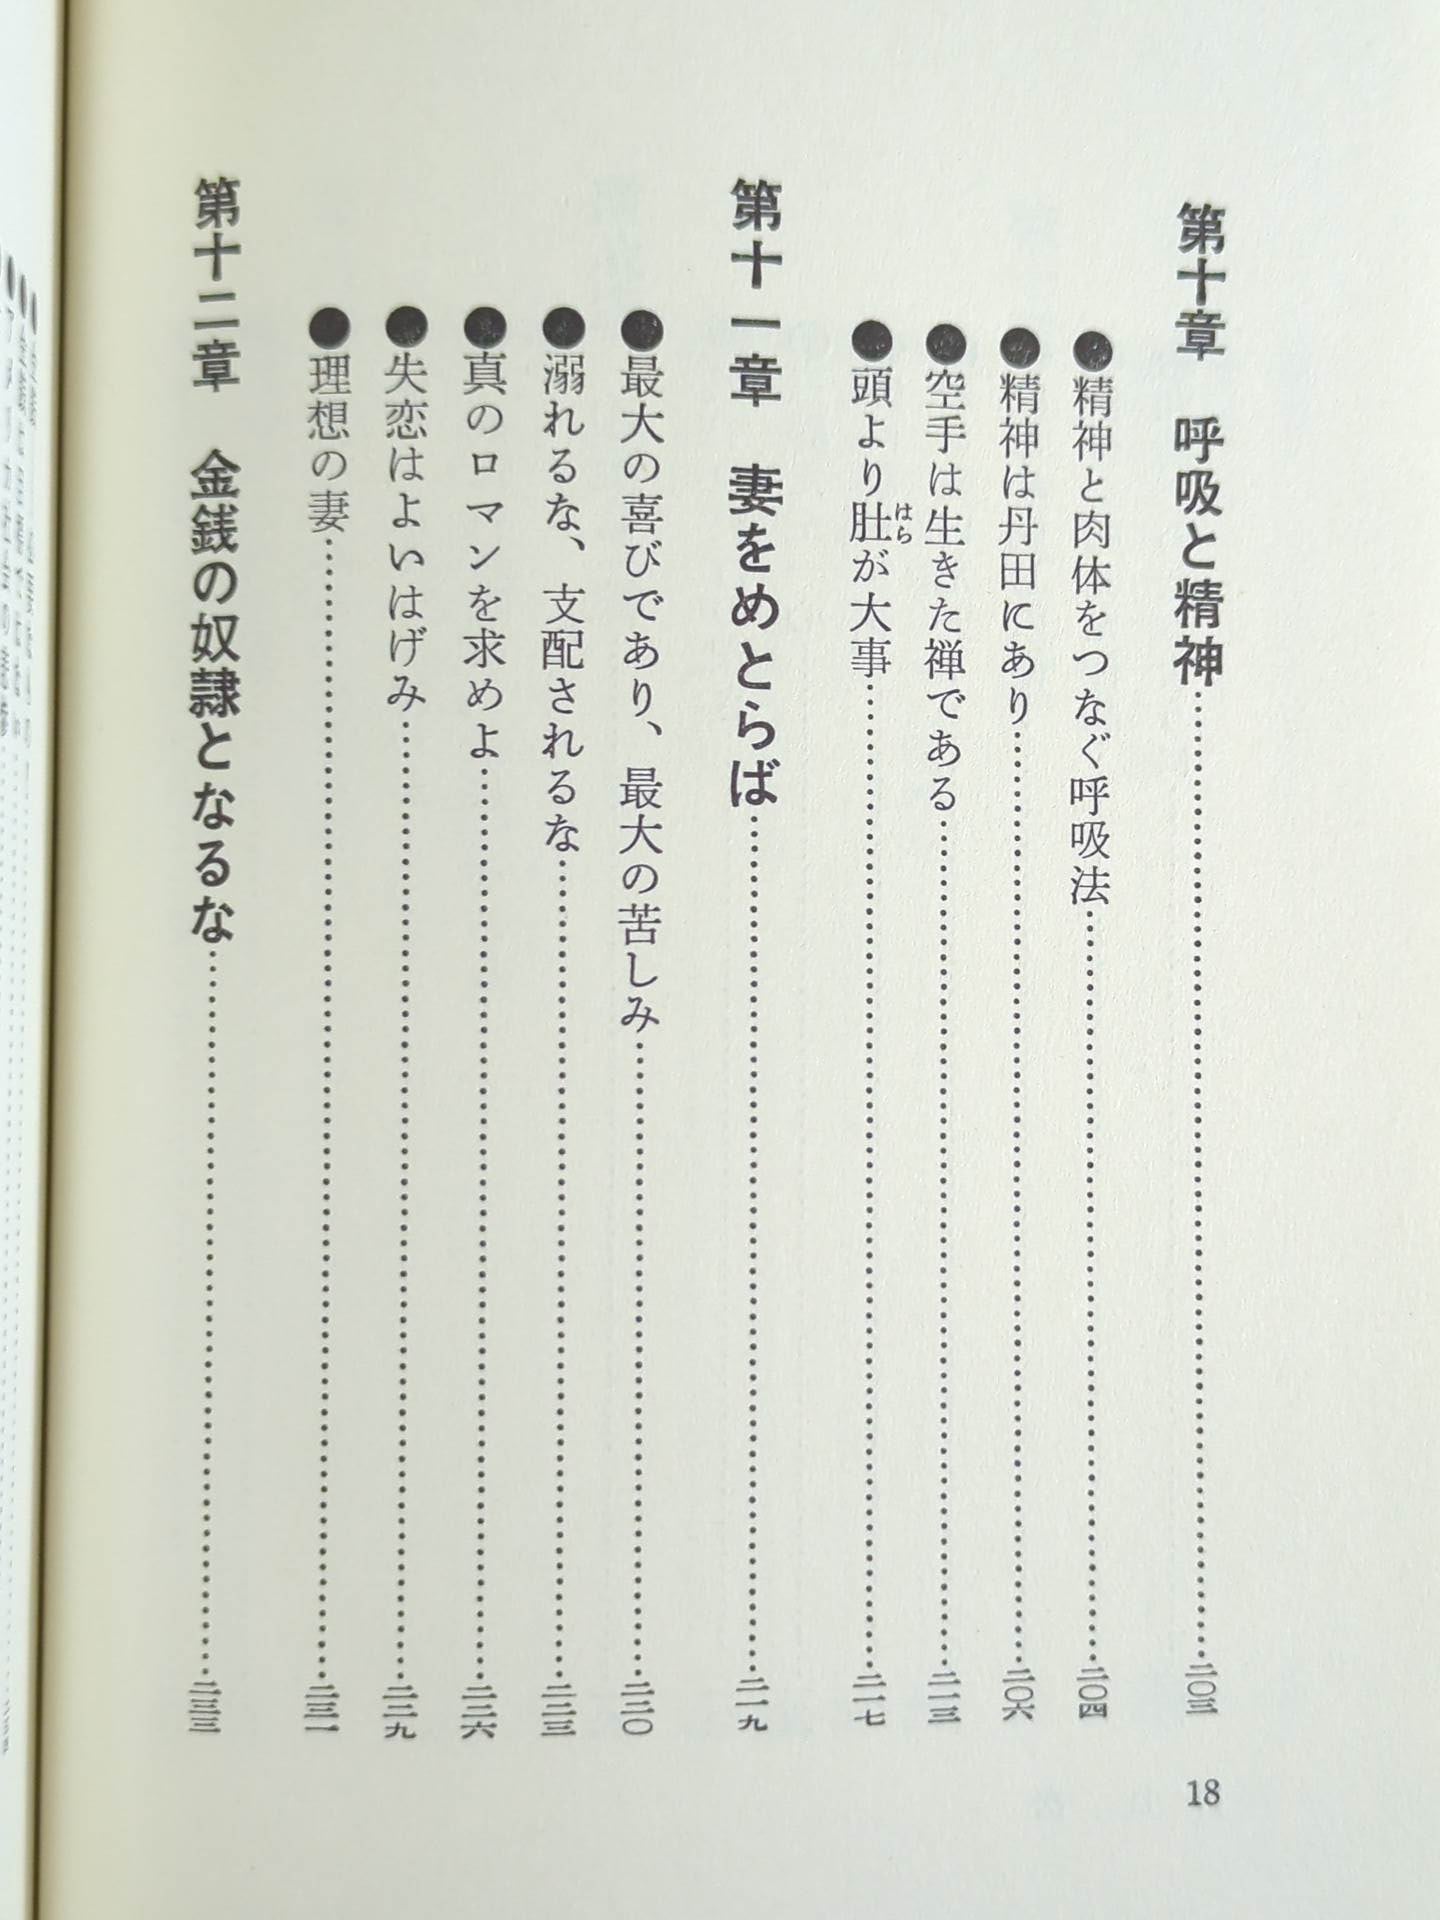 第十章　呼吸と精神……二〇三
●精神と肉体をつなぐ呼吸法……二〇四
●精神は丹田にあり……二〇六
●空手は生きた禅である……二一三
●頭より肚が大事……二一七
はら
第十一章　妻をめとらば……二一九
●最大の喜びであり、最大の苦しみ……二二〇
●溺れるな、支配されるな……二二三
●真のロマンを求めよ……二二六
●失恋はよいはげみ……二二九
●理想の妻……二三一
第十二章　金銭の奴隷となるな……二三三
18